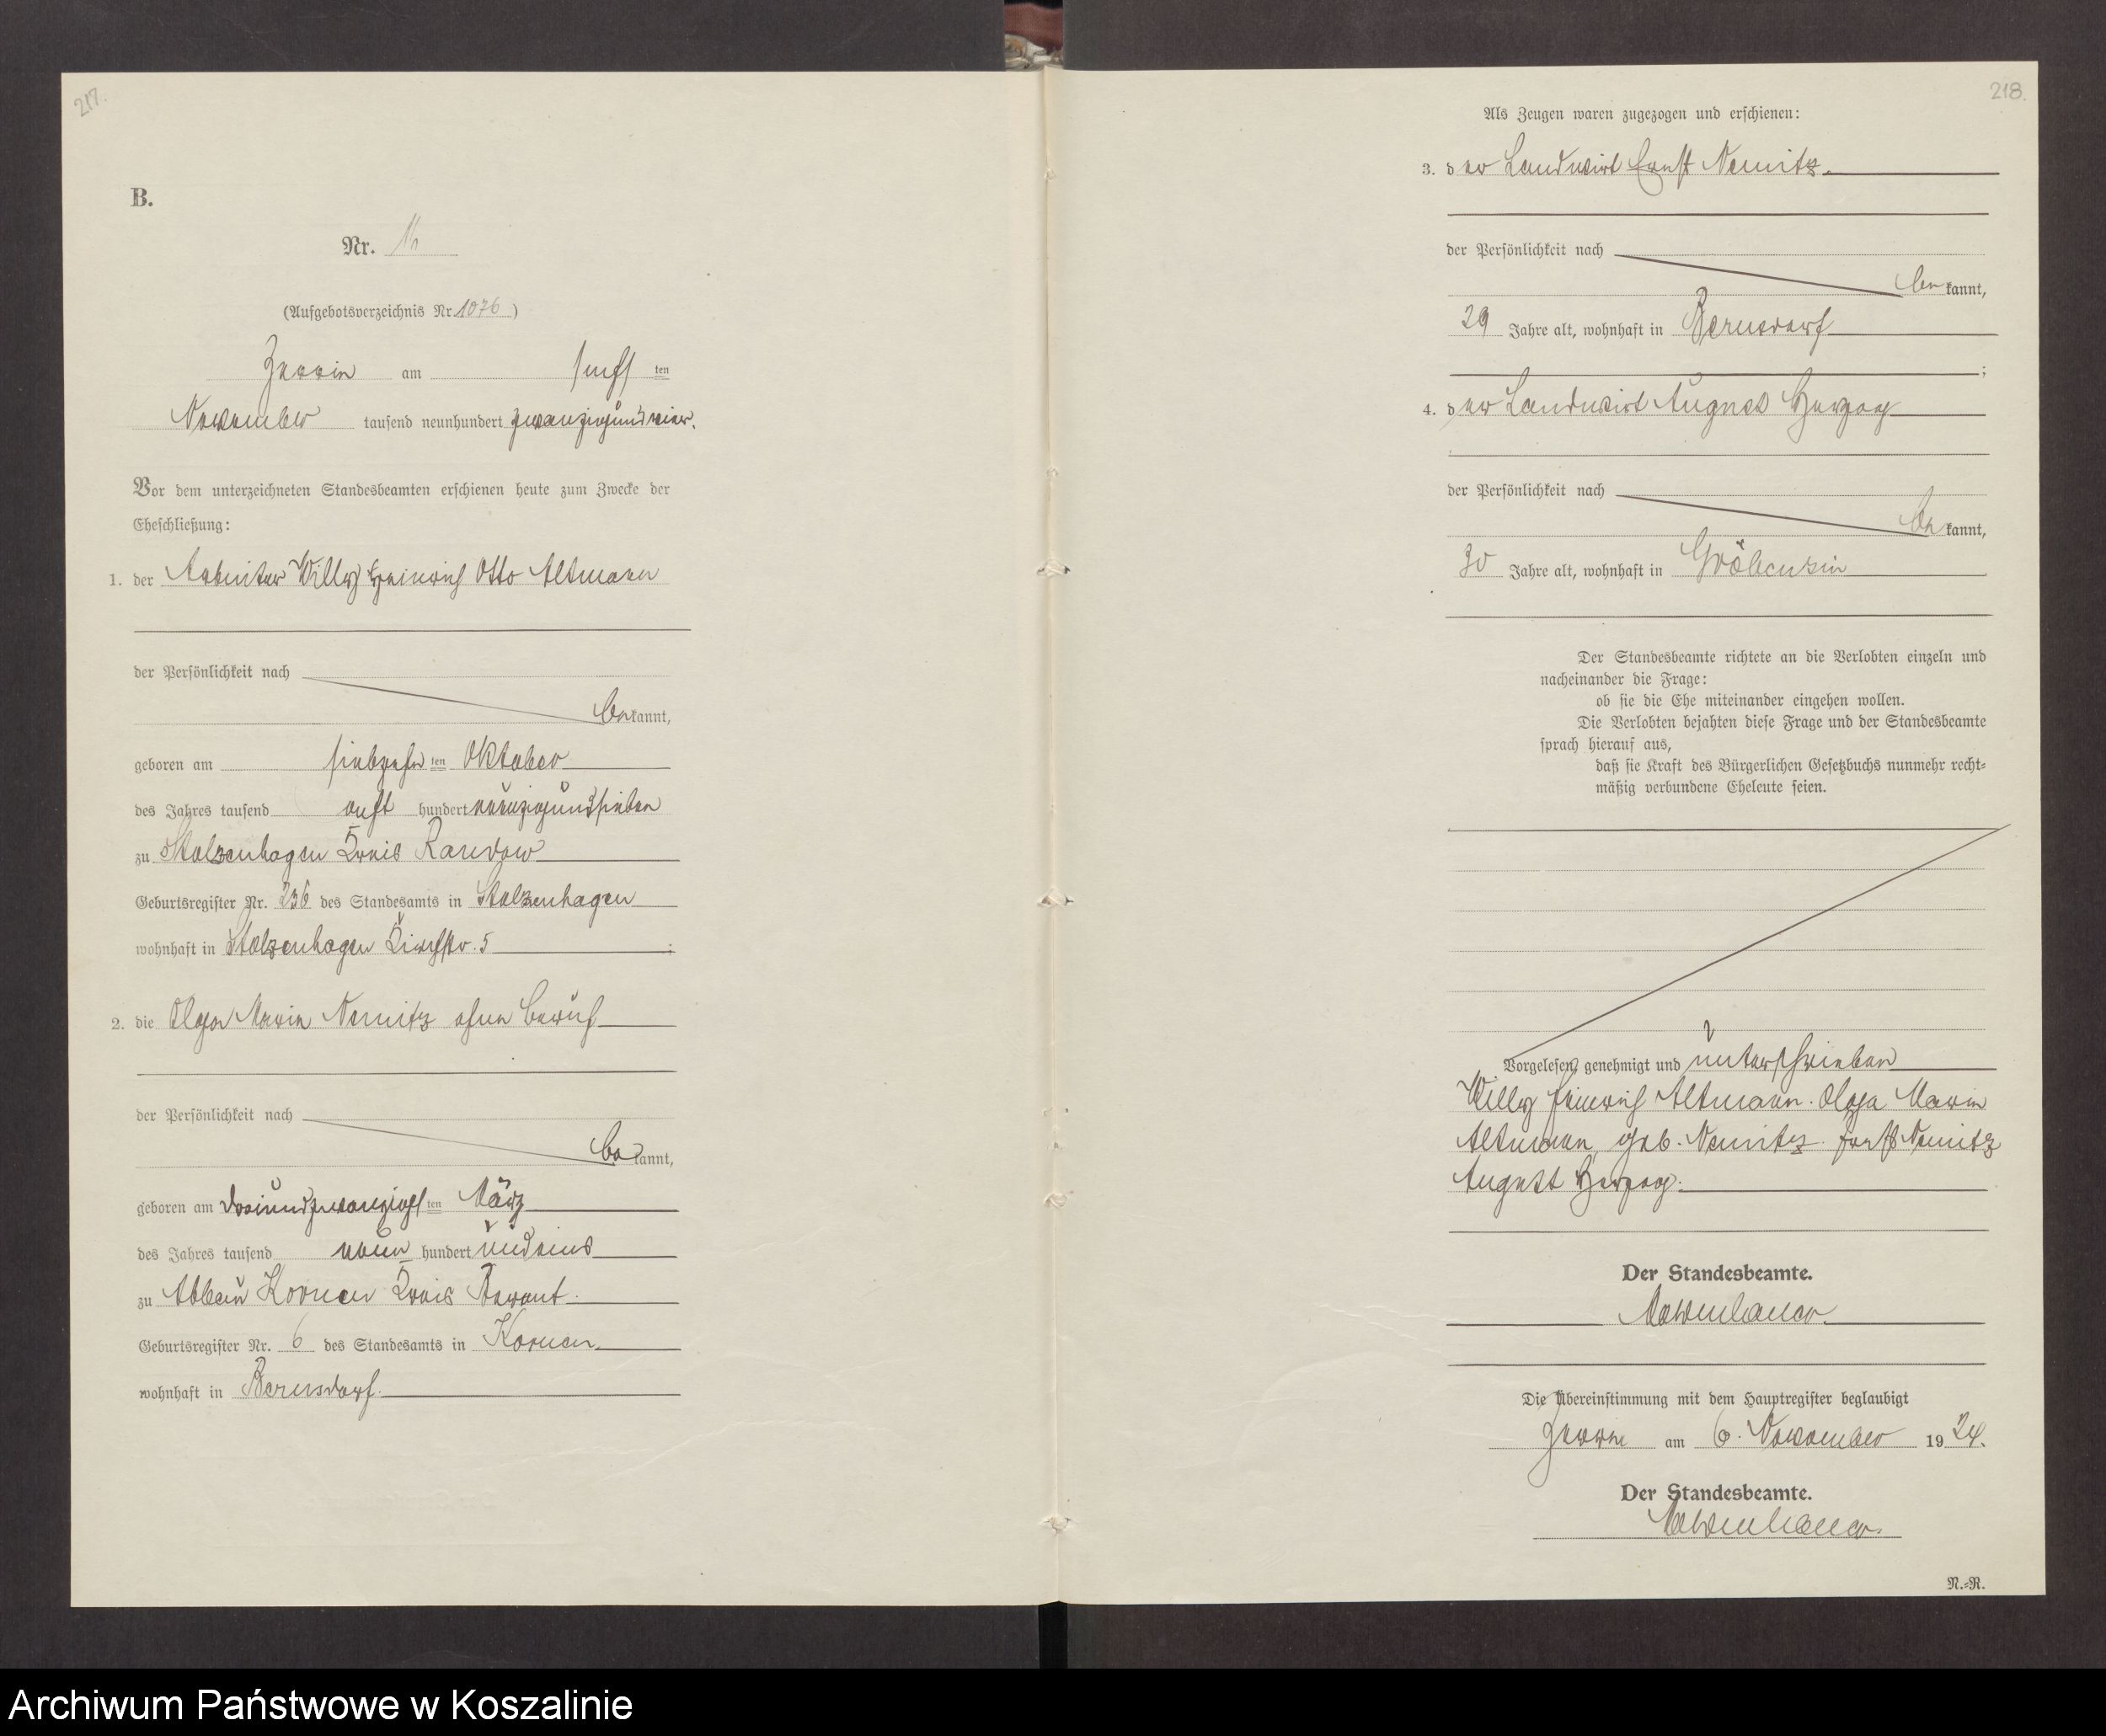 217.
B.
Nr. 11
(Aufgebotsverzeichnis Nr. 1076)
Zerrin am sechsten
November tausend neunhundert zwanzigundvier.
Vor dem unterzeichneten Standesbeamten erschienen heute zum Zwecke der
Eheschließung:
1. der Arbeiter Willy Heinrich Otto Altmann
der Persönlichkeit nach
bekannt,
geboren am siebzehnten Oktober
des Jahres tausend acht hundert neunzigundsieben
zu Stolzenhagen Kreis Randow
Geburtsregister Nr. 236 des Standesamts in Stolzenhagen
wohnhaft in Stolzenhagen Kirchstr. 5;
2. die Olga Marie Nemitz ohne Beruf
der Persönlichkeit nach
bekannt,
geboren am dreiundzwanzigsten März
des Jahres tausend neun hundert undeins
zu Abbau Kornen Kreis Berent.
Geburtsregister Nr. 6 des Standesamts in Kornen.
wohnhaft in Bernsdorf.
218.
Als Zeugen waren zugezogen und erschienen:
3. der Landwirt Ernst Nemitz.
der Persönlichkeit nach
bekannt,
29 Jahre alt, wohnhaft in Bernsdorf
;
4. der Landwirt August Herzog
der Persönlichkeit nach
bekannt,
30 Jahre alt, wohnhaft in Gröbenzin
Der Standesbeamte richtete an die Verlobten einzeln und
nacheinander die Frage:
ob sie die Ehe miteinander eingehen wollen.
Die Verlobten bejahten diese Frage und der Standesbeamte
sprach hierauf aus,
daß sie Kraft des Bürgerlichen Gesetzbuchs nunmehr recht-
mäßig verbundene Eheleute seien.
Vorgelesen, genehmigt und unterschrieben
Willy Heinrich Altmann. Olga Marie
Altmann, geb. Nemitz. Ernst Nemitz
August Herzog.
Der Standesbeamte.
Die Übereinstimmung mit dem Hauptregister beglaubigt
Zerrin am 6. November 1924.
Der Standesbeamte.
N.-R.
Archiwum Państwowe w Koszalinie